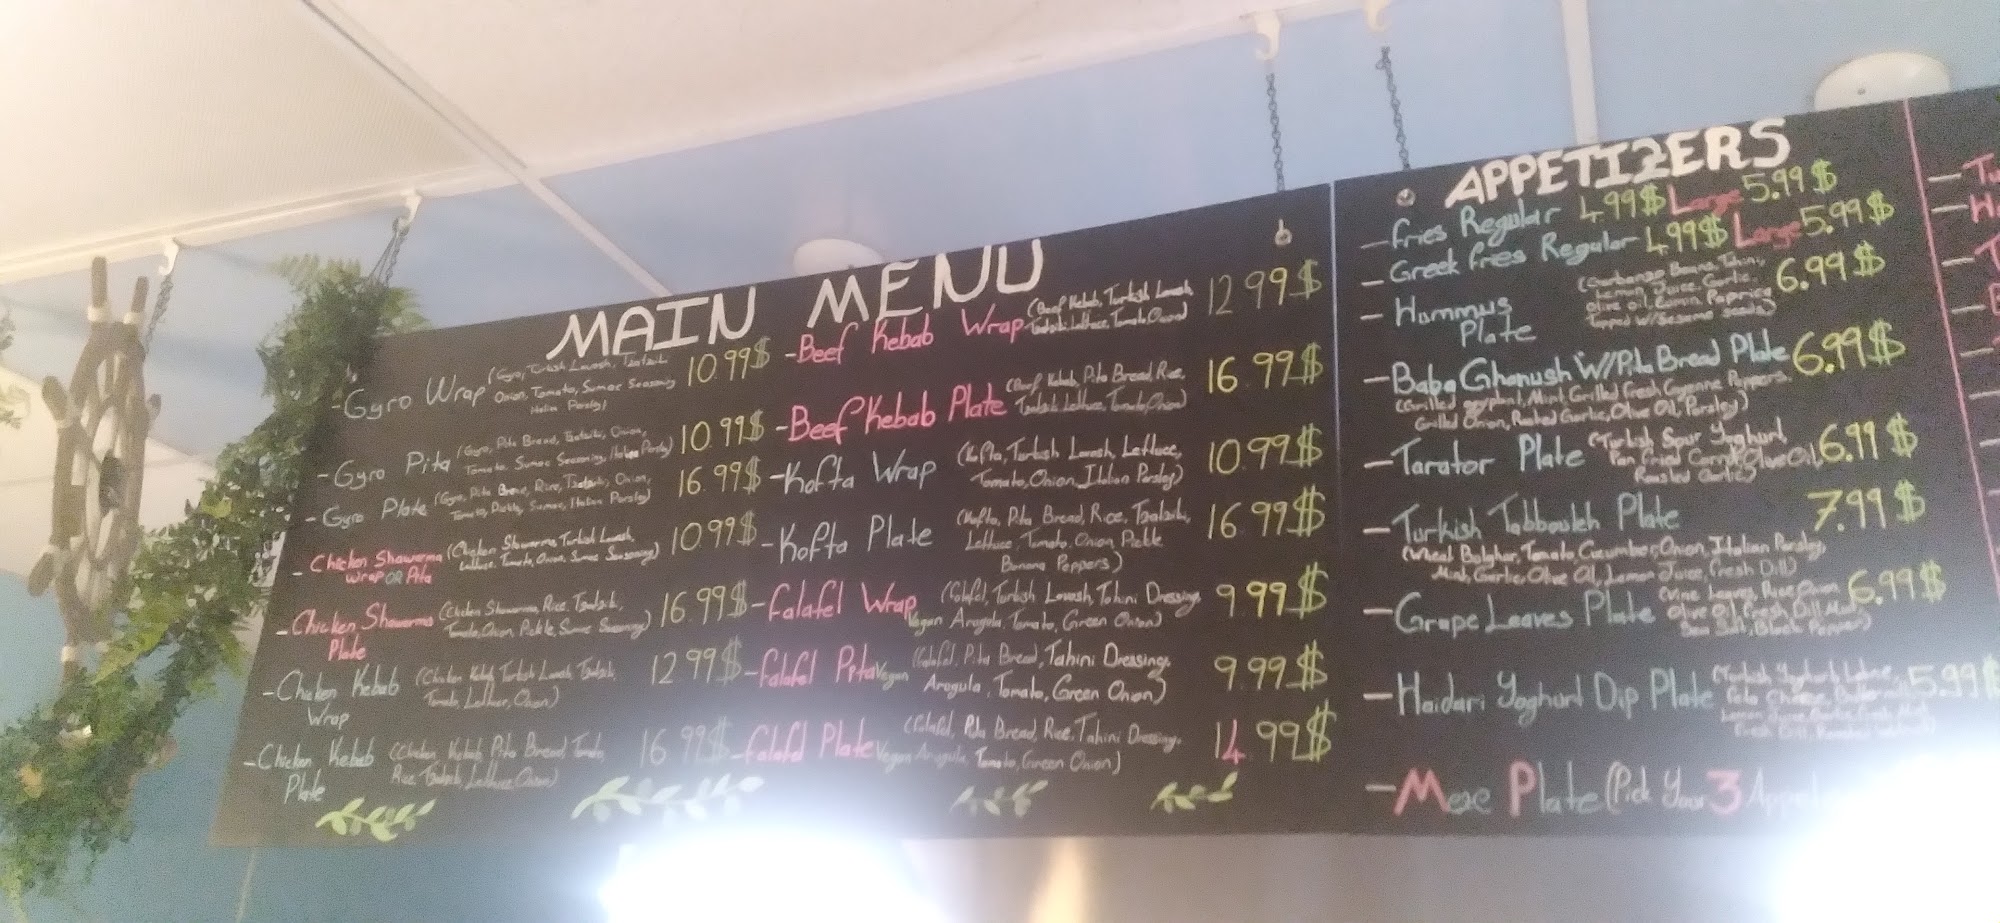 MAIN MENU
-Gyro Wrap (Gyro, Turkish Lavash, Tzatziki 10.99$
Onion, Tomato, Sumac Seasoning
Italian Parsley)
-Gyro Pita (Gyro, Pita Bread, Tzatziki, Onion, 10.99$
Tomato, Sumac Seasoning, Italian Parsley)
-Gyro Plate (Gyro, Pita Bread, Rice, Tzatziki, Onion, 16.99$
Tomato, Pickle, Sumac, Italian Parsley)
-Chicken Shawarma (Chicken Shawarma, Turkish Lavash, 10.99$
Wrap OR Pita Lettuce, Tomato, Onion, Sumac Seasoning)
-Chicken Shawarma (Chicken Shawarma, Rice, Tzatziki, 16.99$
Plate Tomato, Onion, Pickle, Sumac Seasoning)
-Chicken Kebab (Chicken Kebab, Turkish Lavash, Tzatziki, 12.99$
Wrap Tomato, Lettuce, Onion)
-Chicken Kebab (Chicken Kebab, Pita Bread, Tomato, 16.99$
Plate Rice, Tzatziki, Lettuce, Onion)
-Beef Kebab Wrap (Beef Kebab, Turkish Lavash, 12.99$
Tzatziki, Lettuce, Tomato, Onion)
-Beef Kebab Plate (Beef Kebab, Pita Bread, Rice, 16.99$
Tzatziki, Lettuce, Tomato, Onion)
-Kofta Wrap (Kofta, Turkish Lavash, Lettuce, 10.99$
Tomato, Onion, Italian Parsley)
-Kofta Plate (Kofta, Pita Bread, Rice, Tzatziki, 16.99$
Lettuce, Tomato, Onion, Pickle
Banana Peppers)
-Falafel Wrap (Falafel, Turkish Lavash, Tahini Dressing, 9.99$
Vegan Arugula, Tomato, Green Onion)
-Falafel Pita Vegan (Falafel, Pita Bread, Tahini Dressing, 9.99$
Arugula, Tomato, Green Onion)
-Falafel Plate (Falafel, Pita Bread, Rice, Tahini Dressing, 14.99$
Vegan Arugula, Tomato, Green Onion)
APPETIZERS
-Fries Regular 4.99$ Large 5.99$
-Greek Fries Regular 4.99$ Large 5.99$
-Hommus (Garbanzo Beans, Tahini, 6.99$
Plate Lemon Juice, Garlic,
Olive oil, Cumin, Paprica
Topped W/Sesame seeds)
-Baba Ghanush W/Pita Bread Plate 6.99$
(Grilled eggplant, Mint, Grilled Fresh Cayenne Peppers,
Grilled Onion, Roasted Garlic, Olive Oil, Parsley)
-Tarator Plate (Turkish Sour Yoghurt, 6.99$
Pan Fried Carrot, Olive Oil,
Roasted Garlic)
-Turkish Tabbouleh Plate 7.99$
(Wheat Bulghur, Tomato, Cucumber, Onion, Italian Parsley,
Mint, Garlic, Olive Oil, Lemon Juice, Fresh Dill)
-Grape Leaves Plate (Vine Leaves, Rice, Onion 6.99$
Olive Oil, Fresh Dill, Mint,
Sea Salt, Black Pepper)
-Haidari Yoghurt Dip Plate (Turkish Yoghurt, 5.99$
Feta Cheese,
Lemon Juice, Garlic, Fresh Mint,
Fresh Dill, Roasted
-Meze Plate (Pick Your 3